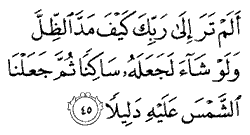 أَلَمْ تَرَ إِلَىٰ رَبِّكَ كَيْفَ مَدَّ ٱلظِّلَّ
وَلَوْ شَآءَ لَجَعَلَهُۥ سَاكِنًا ثُمَّ جَعَلْنَا
ٱلشَّمْسَ عَلَيْهِ دَلِيلًا ٤٥